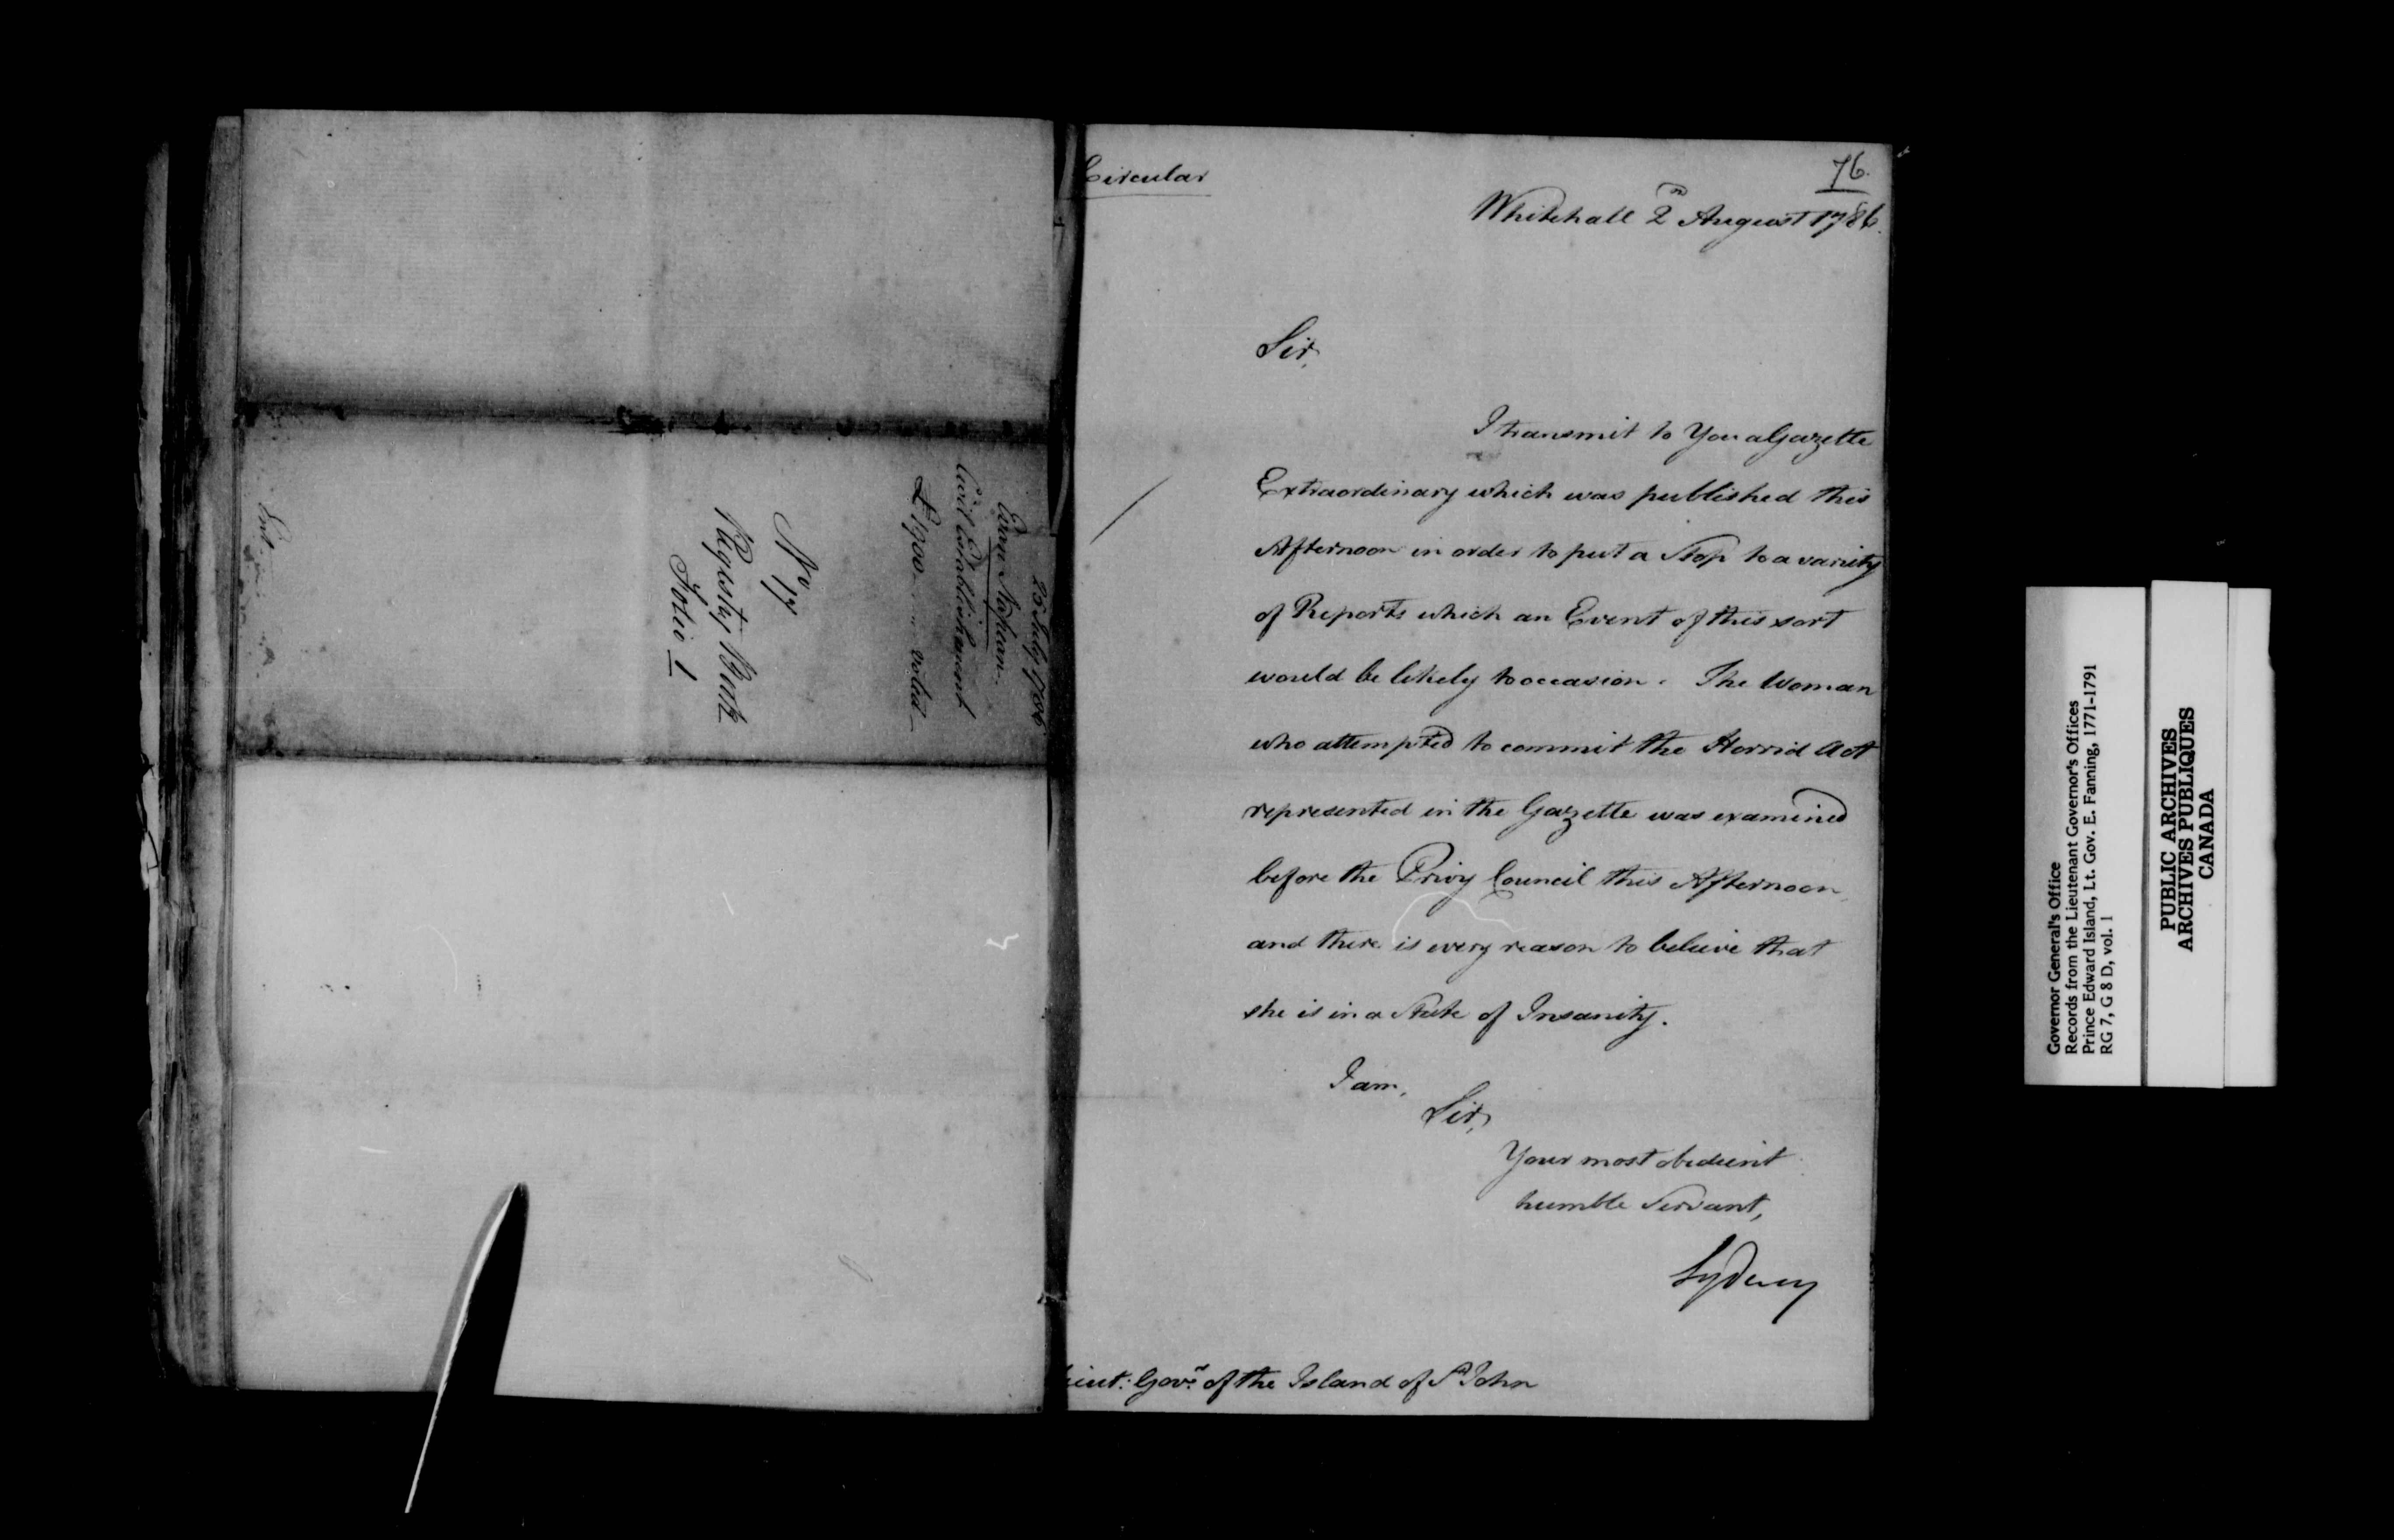 25 July 1786
Evan Nepean
Civil Establishment
£1900 voted
No 17
Regist'd Book
Folio 1
Circular
76.
Whitehall 2d August 1786.
Sir,
I transmit to You a Gazette
Extraordinary which was published this
Afternoon in order to put a Stop to a variety
of Reports which an Event of this sort
would be likely to occasion. The Woman
who attempted to commit the Horrid Act
represented in the Gazette was examined
before the Privy Council this Afternoon,
and there is every reason to beleive that
she is in a State of Insanity.
I am,
Sir,
Your most obedient
humble Servant,
Sydney
Lieut: Govr. of the Island of St John
Governor General's Office
Records from the Lieutenant Governor's Offices
Prince Edward Island, Lt. Gov. E. Fanning, 1771-1791
RG 7, G 8 D, vol. 1
PUBLIC ARCHIVES
ARCHIVES PUBLIQUES
CANADA